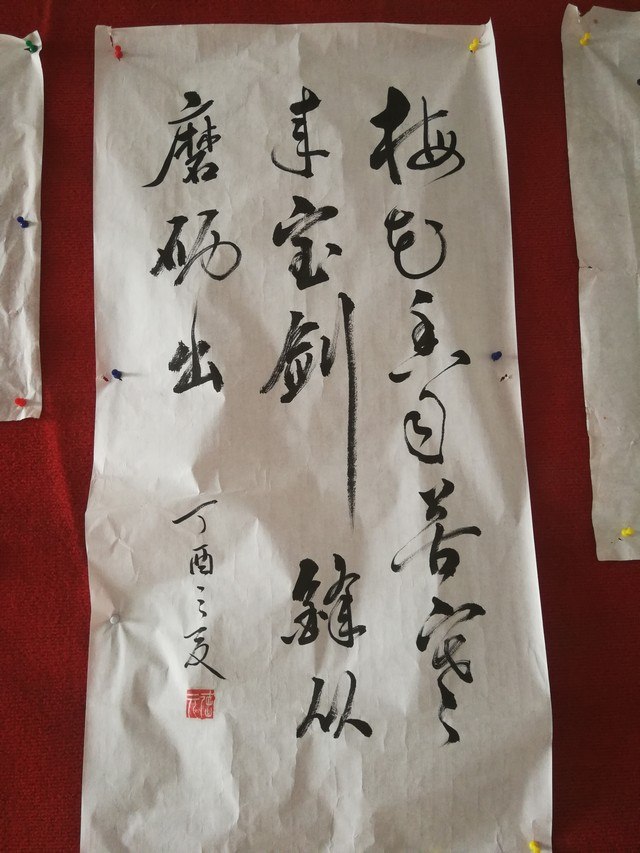 梅花香自苦寒
来宝剑锋从
磨砺出
丁酉之夏